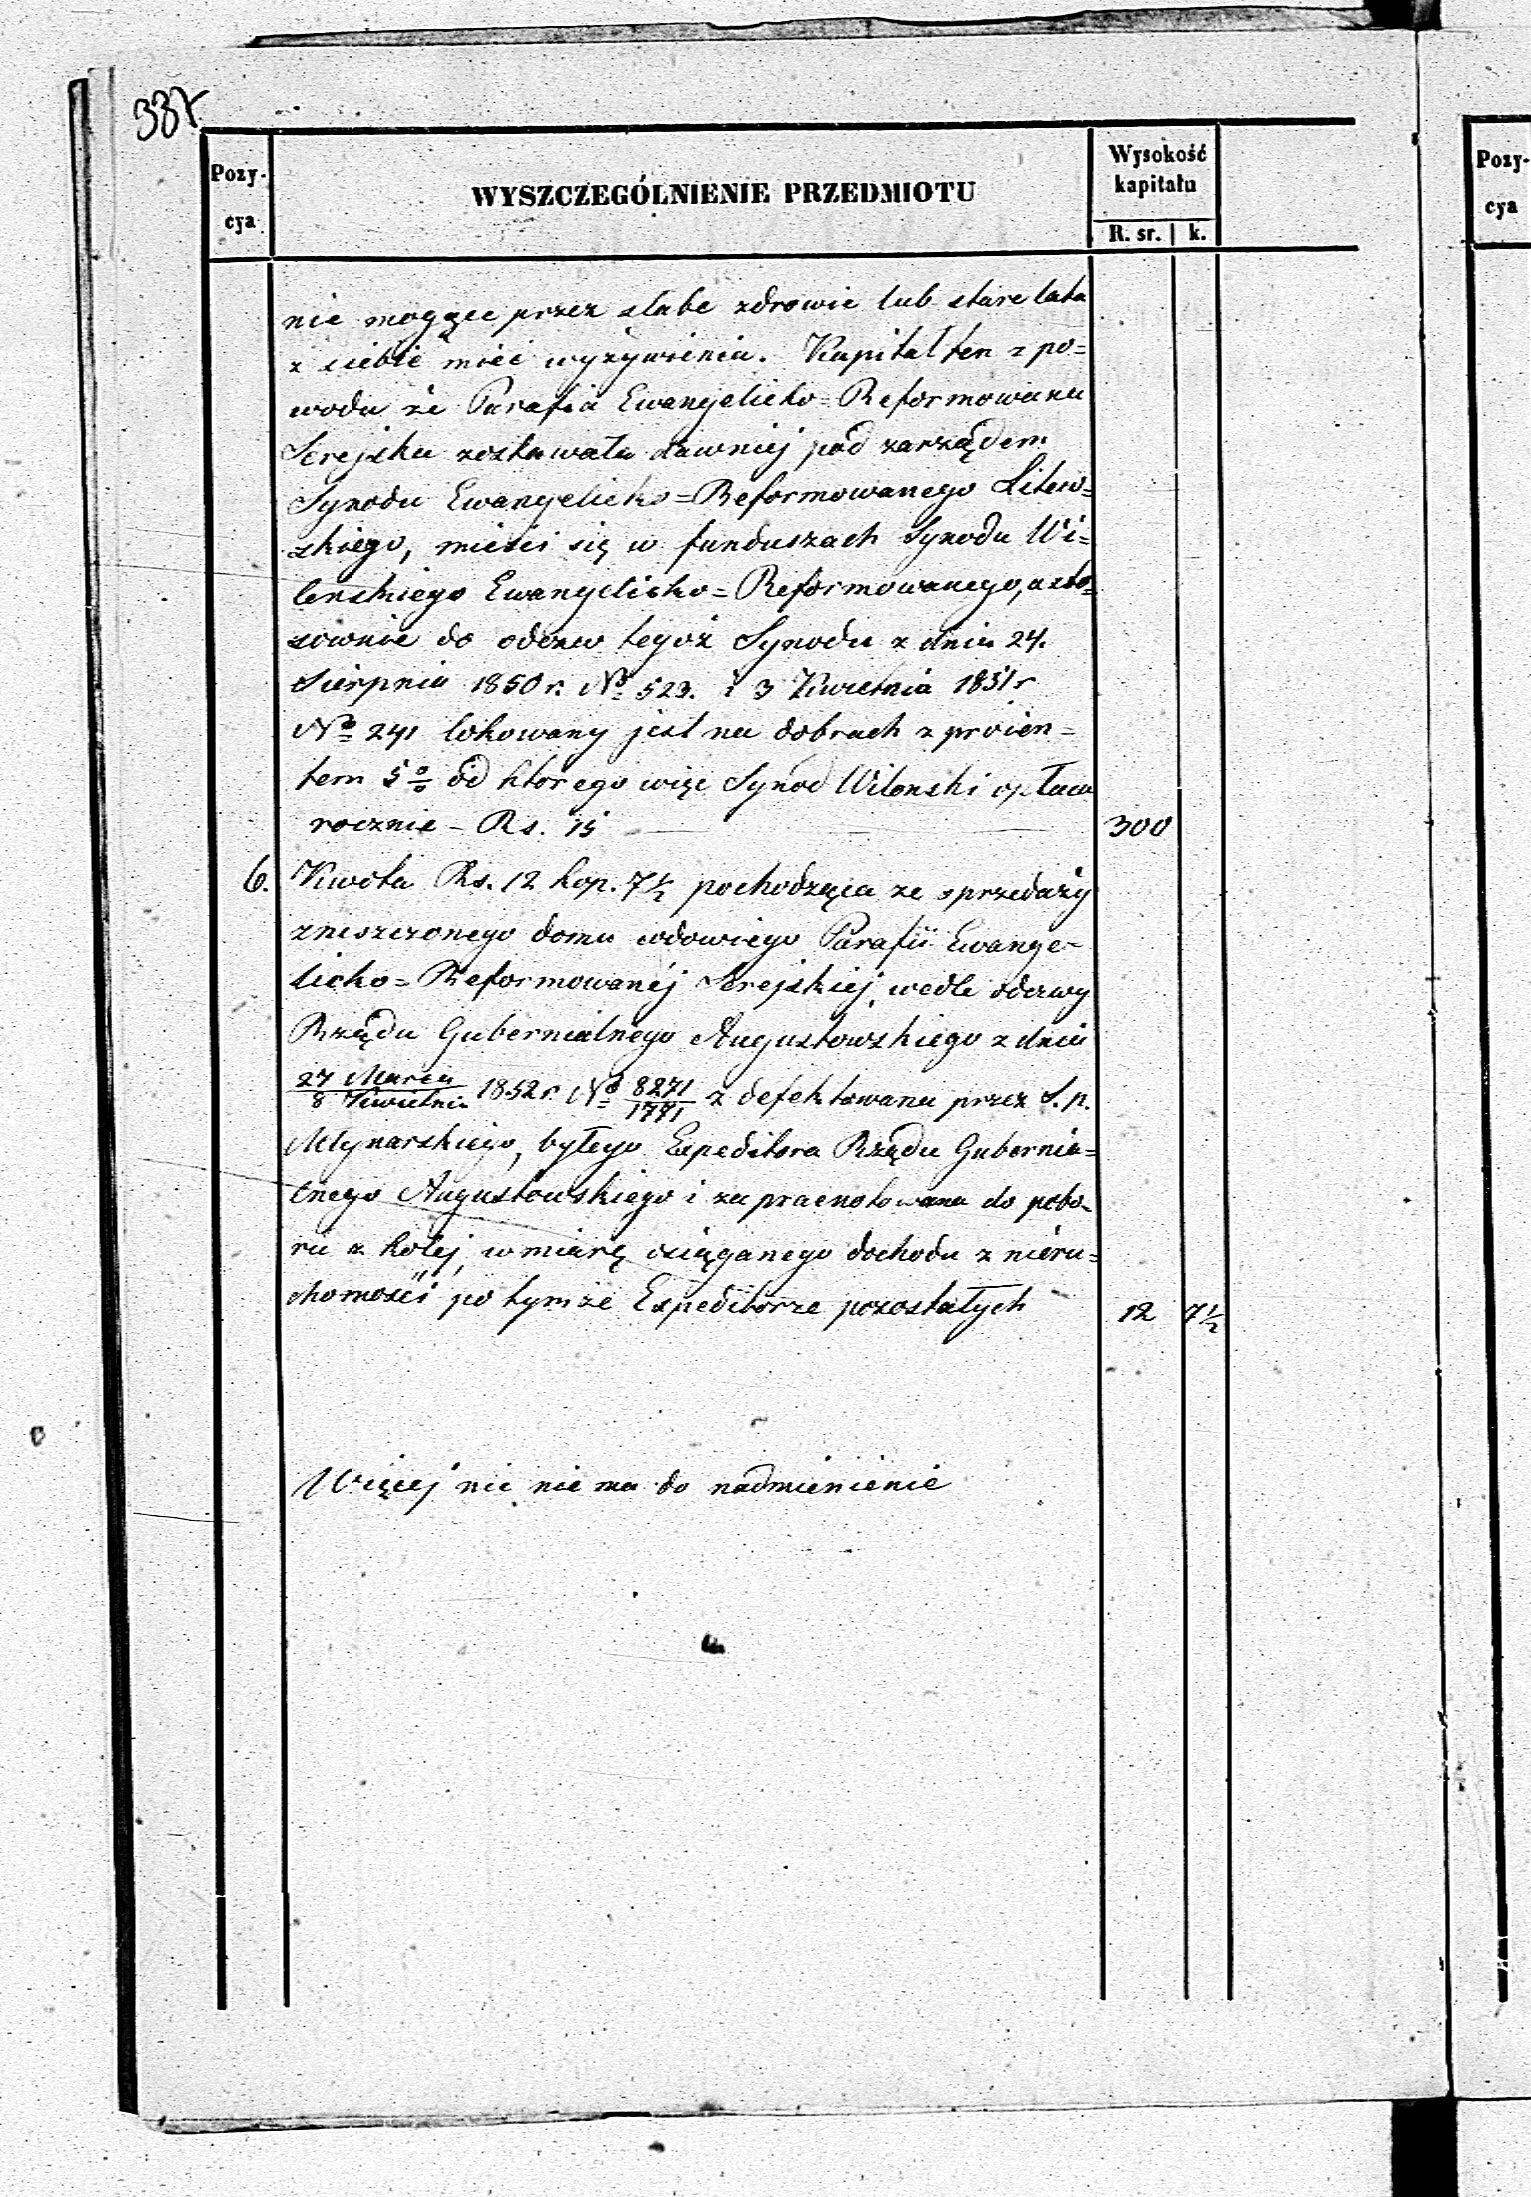 337
Pozy-
cya
WYSZCZEGÓLNIENIE PRZEDMIOTU
Wysokość
kapitału
R. sr. k.
Pozy-
cya
nie mogące przez słabe zdrowie lub stare lata
z siebie mieć wyżywienia. Kapitał ten z po=
wodu że Parafia Ewangelicko=Reformowana
Serejska zostawała dawniej pod zarządem
Synodu Ewangelicko=Reformowanego Litew=
skiego, mieści się w funduszach Synodu Wi=
leńskiego Ewangelicko=Reformowanego, a sto=
sownie do odezw tegoż Synodu z dnia 24.
Sierpnia 1850 r. No 523. i 3 Kwietnia 1851 r
No 241 lokowany jest na dobrach z procen=
tem 5 % od którego więc Synod Wilenski opłaca
rocznie - Rs. 15 300
6. Kwota Rs. 12 kop. 7½ pochodząca ze sprzedaży
zniszczonego domu wdowiego Parafii Ewange-
licko=Reformowanéj Serejskiéj, wedle odezwy
Rządu Gubernialnego Augustowskiego z dnia
27 Marca / 8 Kwietnia 1852 r. No 8271/1771 zdefektowana przez S.p.
Młynarskiego, byłego Expeditora Rządu Gubernia=
lnego Augustowskiego i zapraenotowana do pobo=
ru z kolej, w miarę osiąganego dochodu z nieru=
chomości po tymże Expeditorze pozostałych 12 7½
Więcej nic niema do nadmienienie